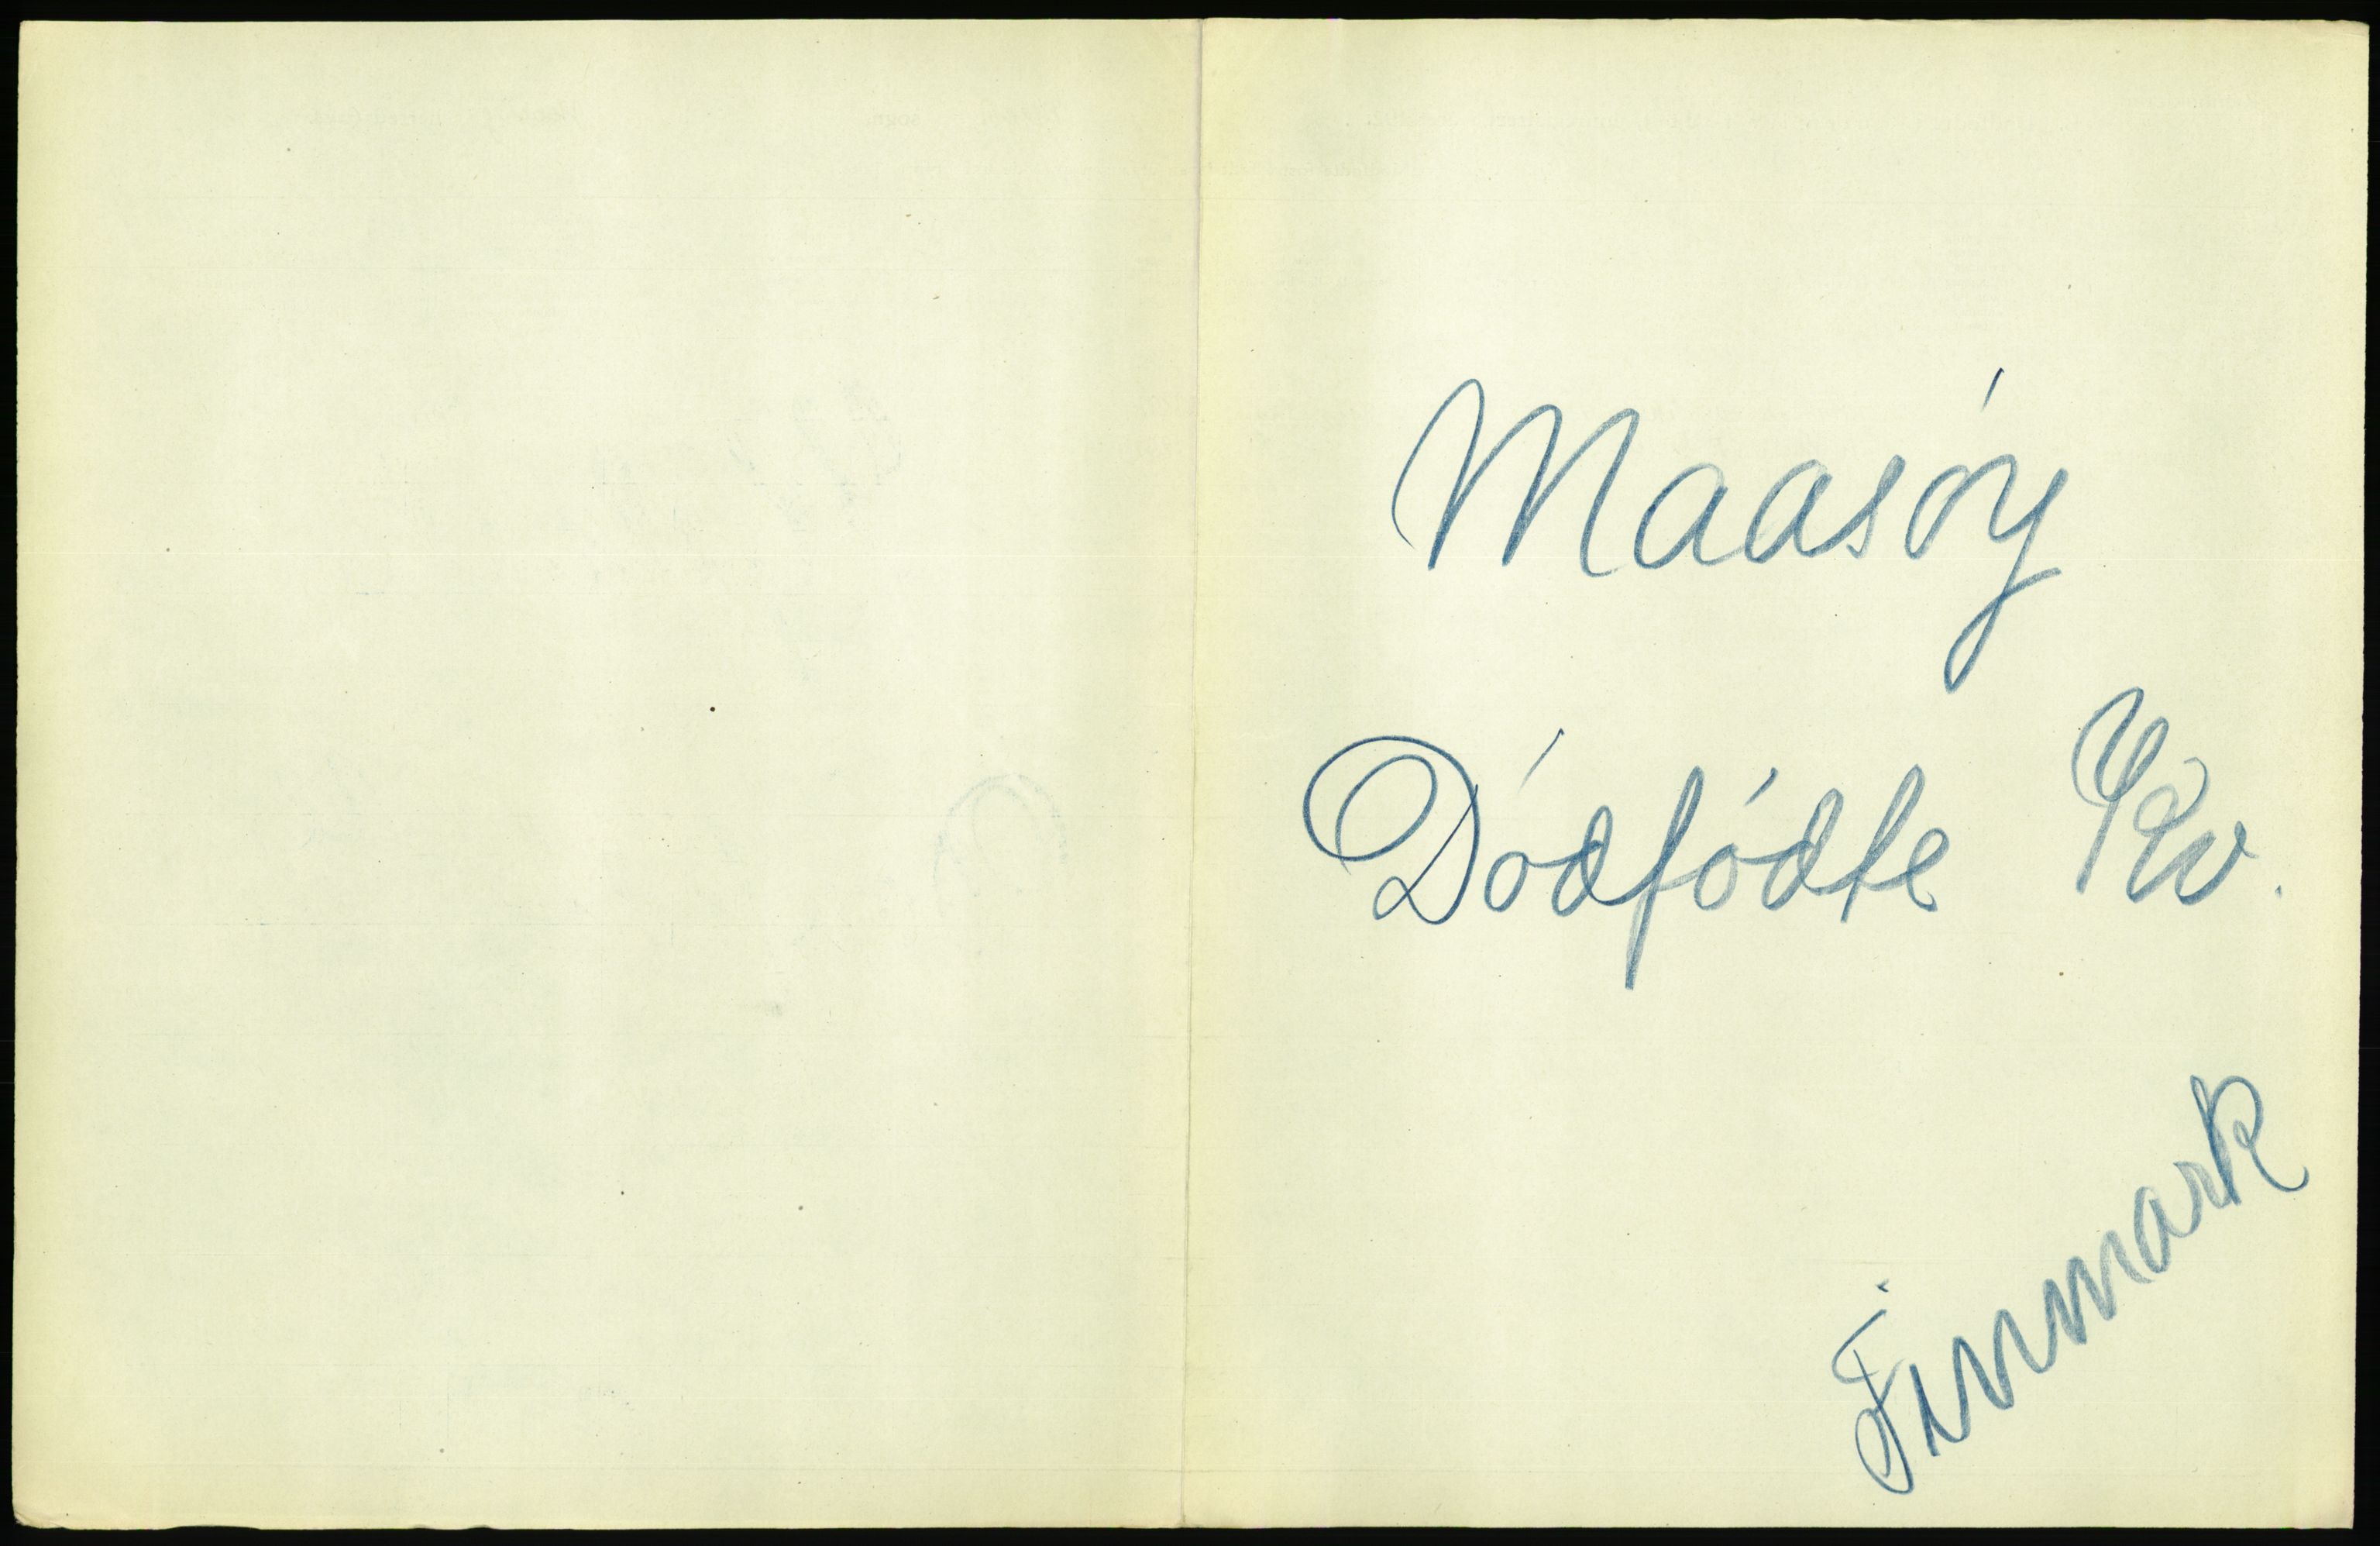 Maasóy
Dódfódte Kv.
Finmark